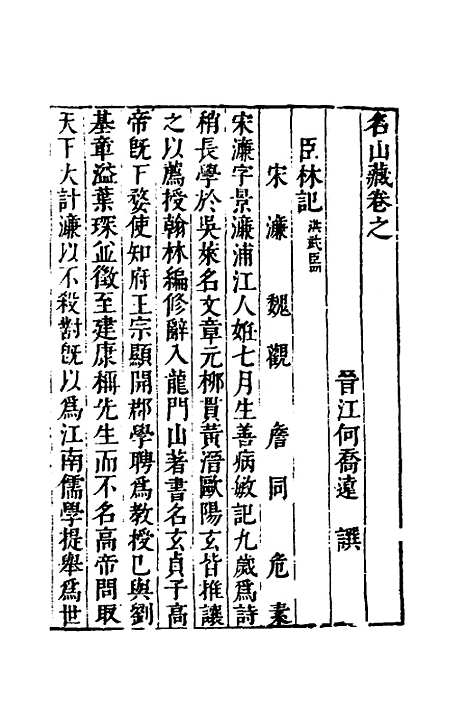 名山藏卷之
晉江何喬遠 譔
臣林記 洪武臣
宋濂 魏觀 詹同 危素
宋濂字景濂浦江人姙七月生善病敏記九歲爲詩
稍長學於吳萊名文章元栁貫黃溍歐陽玄皆推讓
之以薦授翰林編修辭入龍門山著書名玄貞子高
帝旣下婺使知府王宗顯開郡學聘爲教授已與劉
基章溢葉琛並徵至建康稱先生而不名高帝問取
天下大計濂以不殺對旣以爲江南儒學提舉爲世